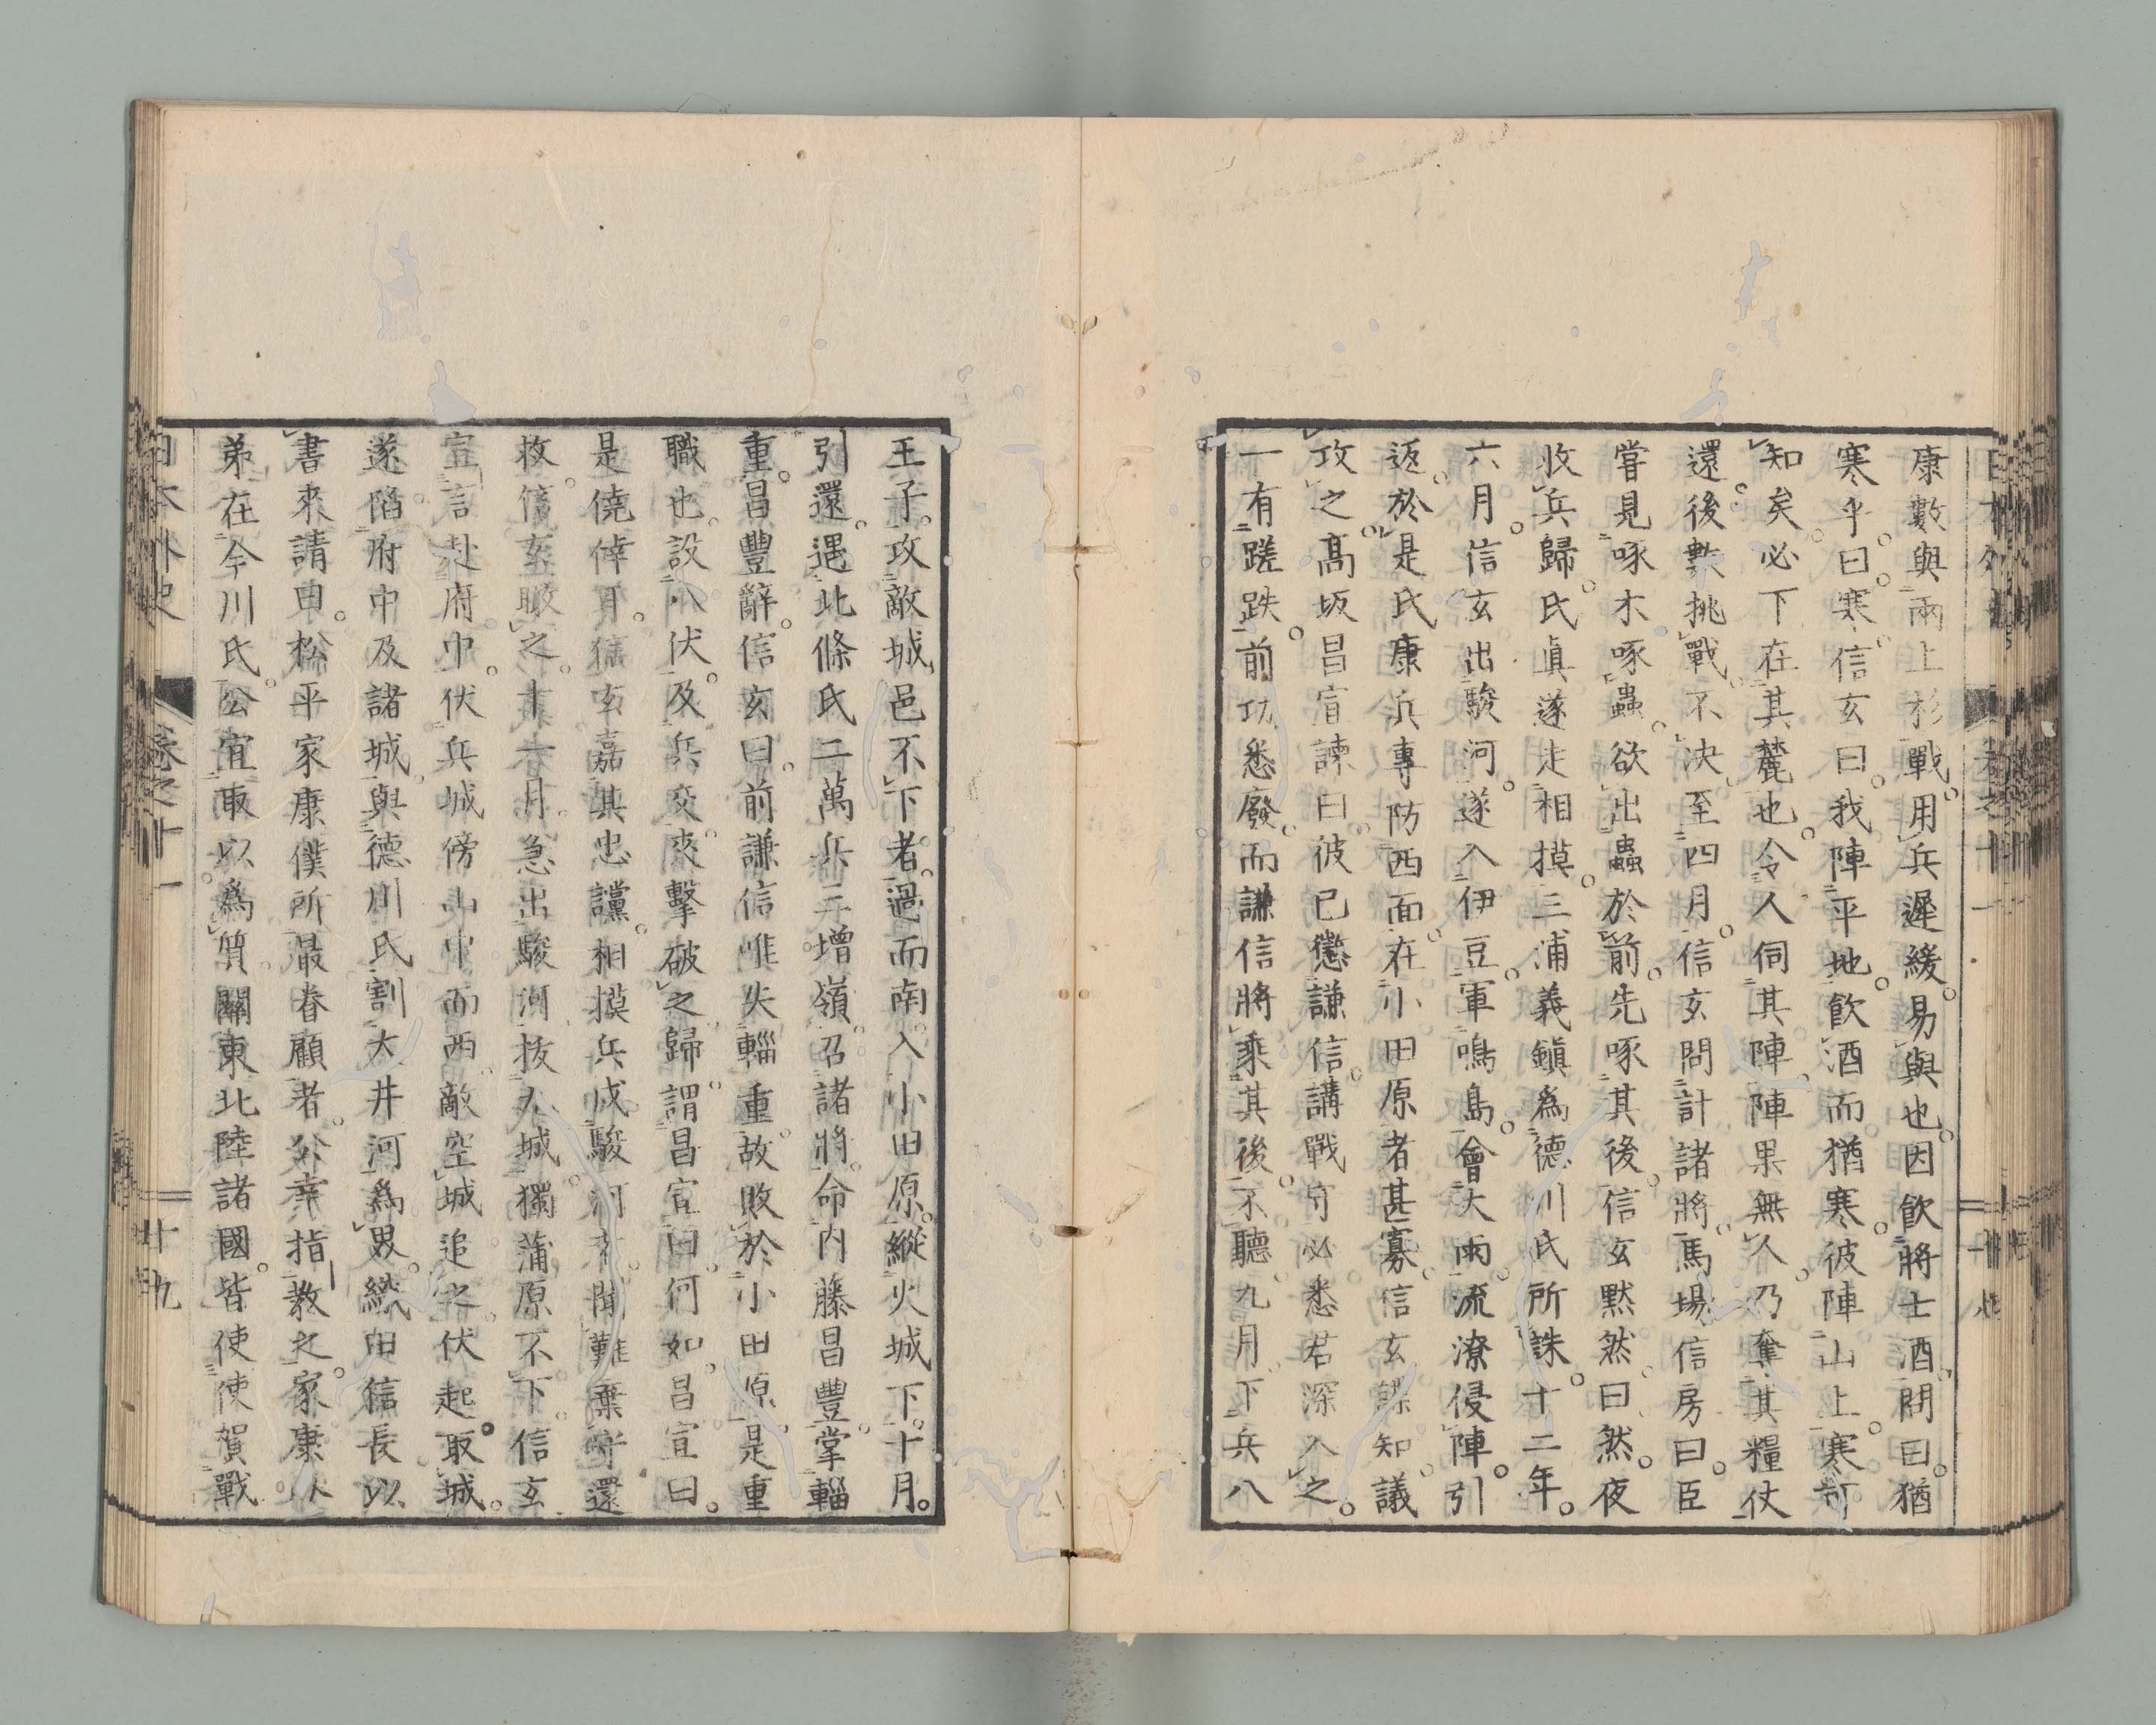 康數與兩上杉戰。用兵遲緩。易與也。因飲將士酒。問曰。猶
寒乎。曰。寒。信玄曰。我陣平地。飲酒而猶寒。彼陣山上。寒可
知矣。必下在其麓也。令人伺其陣。陣果無人。乃奪其糧仗
還。後數挑戰。不決。至四月。信玄問計諸將。馬場信房曰。臣
嘗見啄木啄蟲。欲出蟲於前。先啄其後。信玄默然。曰然。夜
收兵歸。氏眞遂走相摸。三浦義鎮爲德川氏所誅。十二年。
六月。信玄出駿河。遂入伊豆。軍鳴島。會大雨。流潦侵陣。引
返。於是氏康兵專防西面。在小田原者甚寡。信玄諜知議
攻之。高坂昌宣諫曰。彼已懲謙信。講戰守必悉。君深入之。
一有蹉跌。前功悉廢。而謙信將乘其後。不聽。九月。下兵八
王子。攻敵城邑。不下者。過而南。入小田原。縱火城下。十月。
引還。遇北條氏二萬兵三增嶺。召諸將。命內藤昌豐掌輜
重。昌豐辭。信玄曰。前謙信唯失輜重。故敗於小田原。是重
職也。設八伏。及兵交。夾擊破之。歸。謂昌宣曰。何如。昌宣曰。
是僥倖耳。信玄嘉其忠讜。相摸兵戍駿河者。聞難棄守還
救。信玄敗之。十一月。急出駿河。拔八城。獨蒲原不下。信玄
宣言赴府中。伏兵城傍山中而西。敵空城追之。伏起取城。
遂陷府中及諸城。與德川氏割大井河爲界。織田信長以
書來請曰。松平家康僕所最眷顧者。公幸指教之。家康以
弟在今川氏。公宜取以爲質。關東北陸諸國。皆使使賀戰
日本外史 卷之十一 廿九